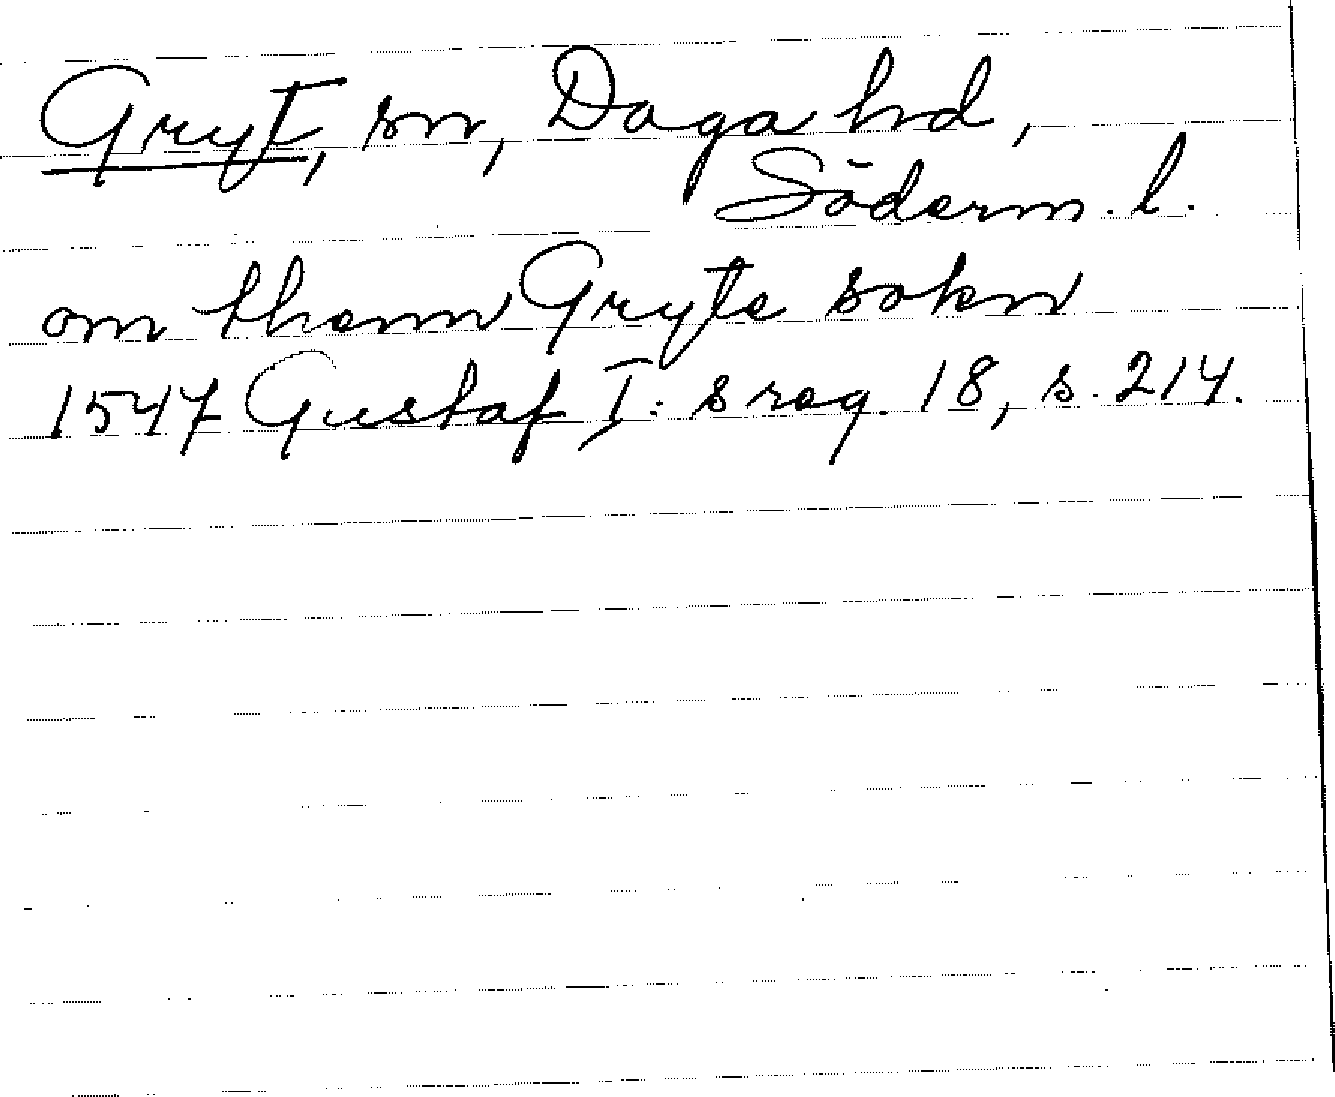 Gryt, sn, Daga hd,
Söderm. l.
om thenn Gryte sokn
1547 Gustaf I:s reg. 18, s. 214.